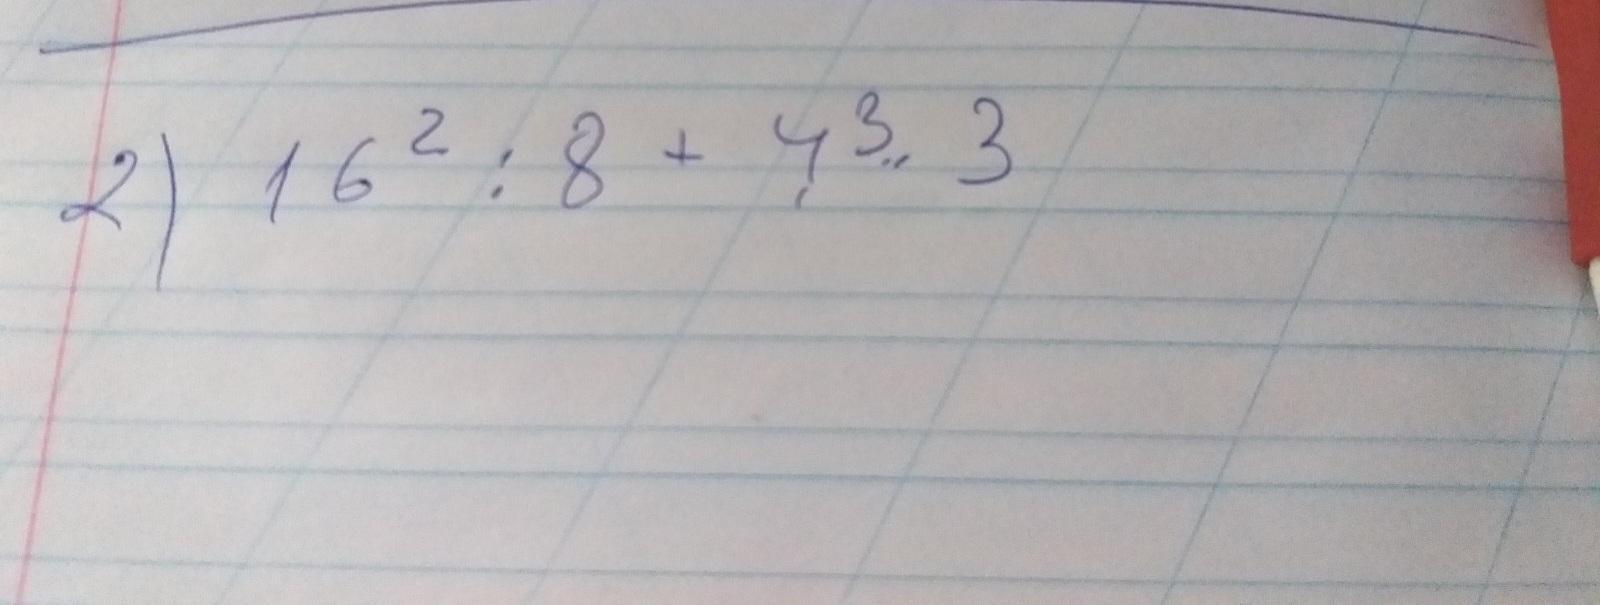 2) 16² : 8 + 4³ · 3